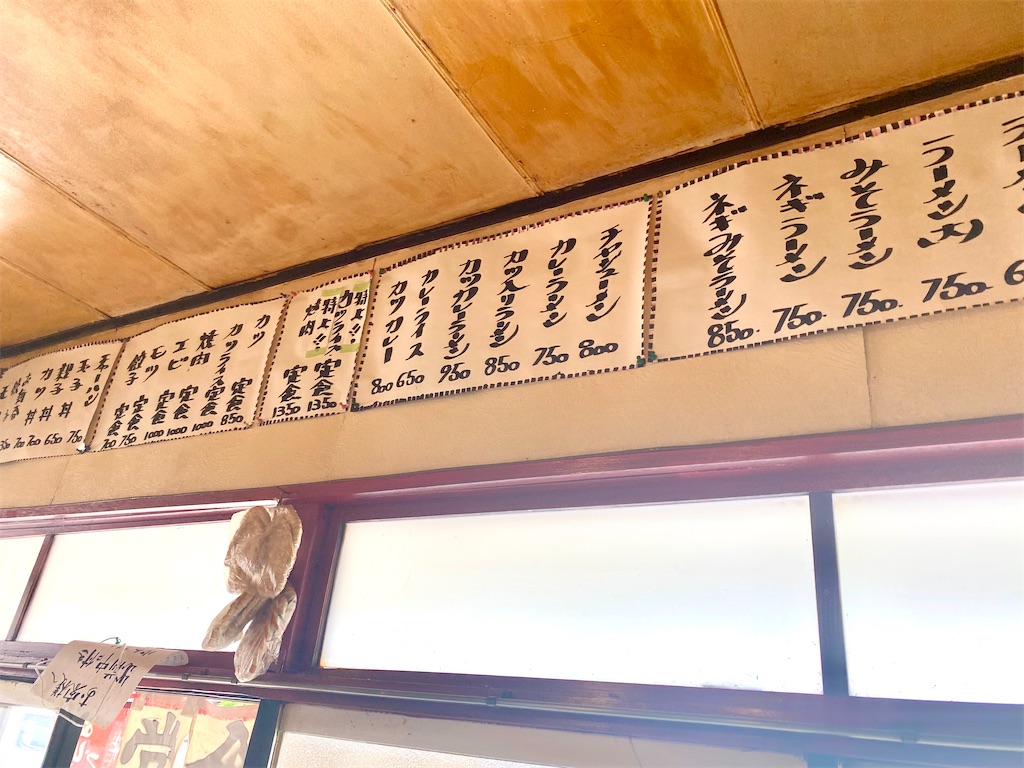 ラーメン 大 750
みそラーメン 750.
ネギラーメン 750.
ネギみそラーメン 850.
チャーシューメン 800
カレーラーメン 750
カツ入りラーメン 850
カツカレーラーメン 950
カレーライス 650
カツカレー 800
特上!!
カツライス定食 1350
特上!!
焼肉定食 1350
カツ定食 850
カツライス定食 1000
焼肉定食 1000
エビ定食 1000
モツ定食 750
餃子定食 700
750
玉子丼 650
親子丼 700
カツ丼 700